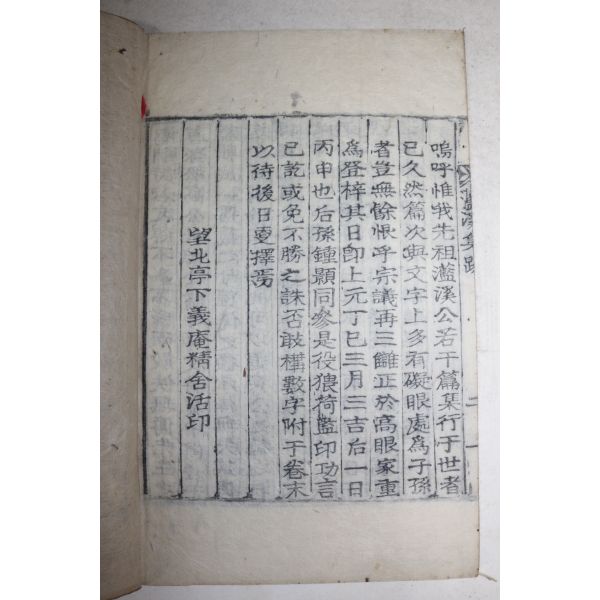 嗚呼惟我先祖灆溪公若干篇集行于世者
已久然篇次與文字上多有礙眼處爲子孫
者豈無餘恨乎宗議再三讎正於高眼家重
爲登梓其日卽上元丁巳三月三吉后一日
丙申也后孫鍾顥同參是役猥荷監印功言
已訖或免不勝之誅否敢構數字附于卷末
以待後日更擇焉
望北亭下義庵精舍活印
溪集跋